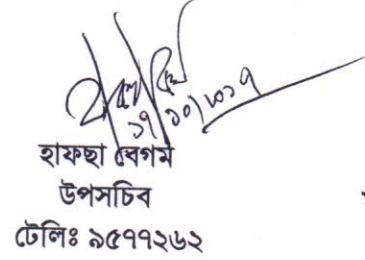 ১৭/১০/২০১৭
হাফছা বেগম
উপসচিব
টেলিঃ ৯৫৭৭২৬২